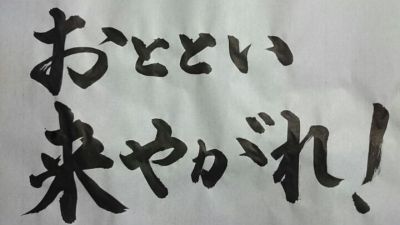 おととい
来やがれ！